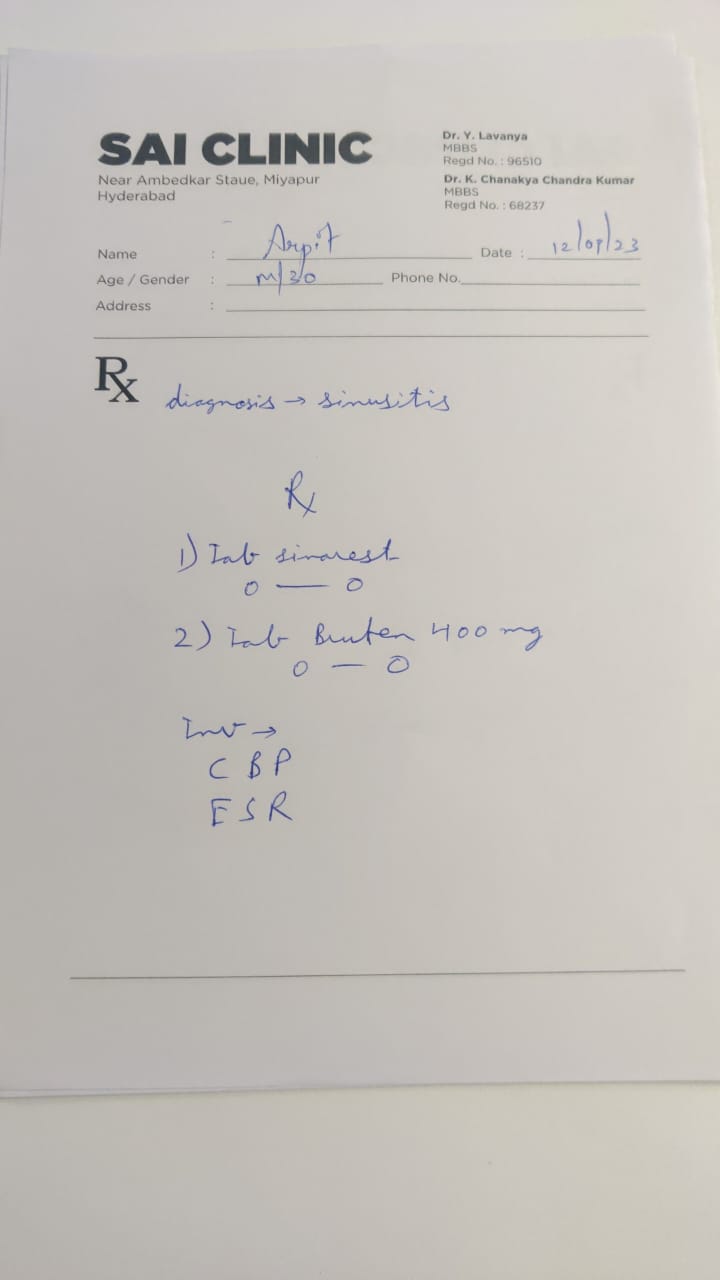 SAI CLINIC
Near Ambedkar Staue, Miyapur
Hyderabad
Dr. Y. Lavanya
MBBS
Regd No. : 96510
Dr. K. Chanakya Chandra Kumar
MBBS
Regd No. : 68237
Name : Arpit Date :
Age / Gender : M/30 Phone No.
Address :
Rx diagnosis → sinusitis
Rx
1) Tab sinarest
0 — 0
2) Tab 400 mg
0 — 0
Inv →
CBP
ESR